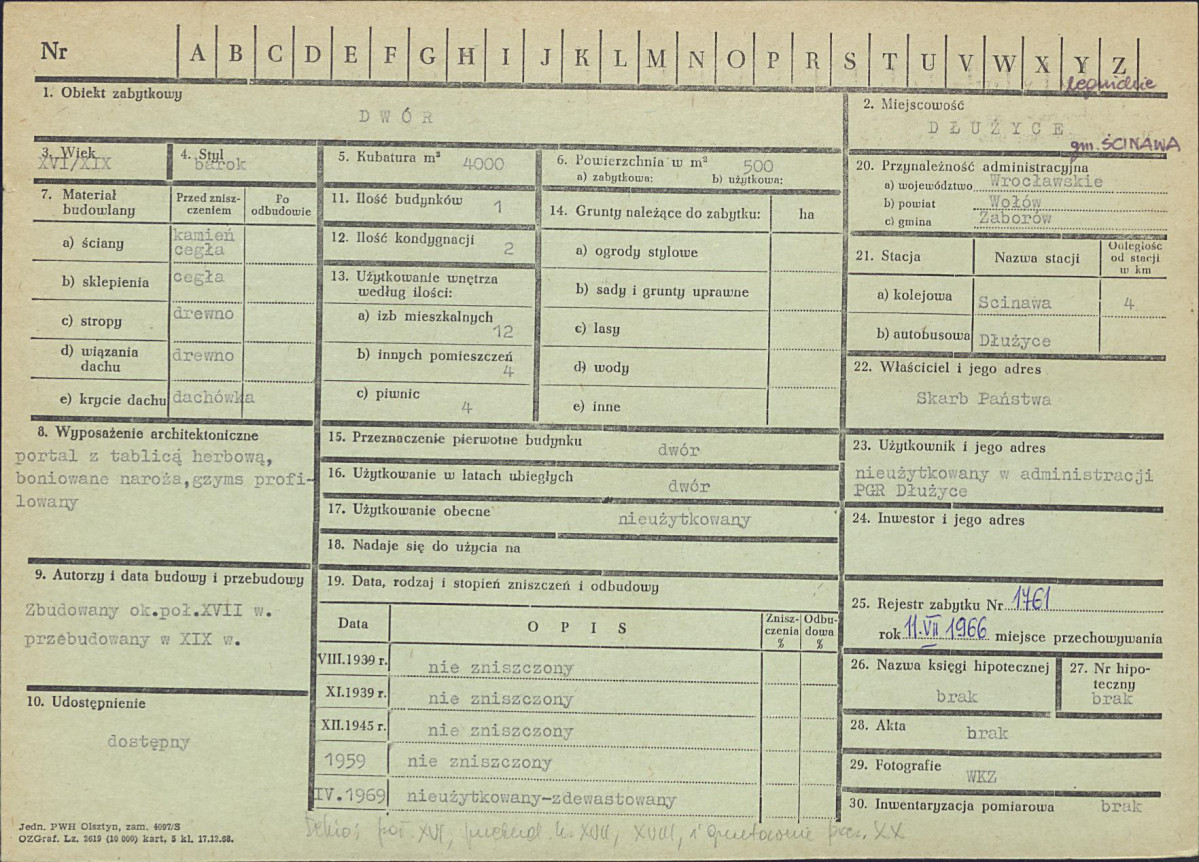 Nr A B C D E F G H I J K L M N O P R S T U V W X Y Z
1. Obiekt zabytkowy
DWÓR
2. Miejscowość
DŁUŻYCE
gm. ŚCINAWA
3. Wiek
XVI/XIX
4. Styl
barok
5. Kubatura m³ 4000
6. Powierzchnia w m² 500
a) zabytkowa: b) użytkowa:
7. Materiał budowlany
Przed zniszczeniem
Po odbudowie
a) ściany
kamień
cegła
b) sklepienia cegła
c) stropy drewno
d) wiązania dachu drewno
e) krycie dachu dachówka
8. Wyposażenie architektoniczne
portal z tablicą herbową,
boniowane naroża,gzyms profi-
lowany
9. Autorzy i data budowy i przebudowy
Zbudowany ok.poł.XVII w.
przebudowany w XIX w.
10. Udostępnienie
dostępny
11. Ilość budynków 1
12. Ilość kondygnacji 2
13. Użytkowanie wnętrza
według ilości:
a) izb mieszkalnych
12
b) innych pomieszczeń
4
c) piwnic
4
14. Grunty należące do zabytku: ha
a) ogrody stylowe
b) sady i grunty uprawne
c) lasy
d) wody
e) inne
15. Przeznaczenie pierwotne budynku
dwór
16. Użytkowanie w latach ubiegłych
dwór
17. Użytkowanie obecne
nieużytkowany
18. Nadaje się do użycia na
19. Data, rodzaj i stopień zniszczeń i odbudowy
Data OPIS Zniszczenia % Odbudowa %
VIII.1939 r. nie zniszczony
XI.1939 r. nie zniszczony
XII.1945 r. nie zniszczony
1959 nie zniszczony
IV.1969 nieużytkowany-zdewastowany
20. Przynależność administracyjna
a) województwo Wrocławskie
b) powiat Wołów
c) gmina Zaborów
21. Stacja Nazwa stacji Odległość od stacji w km
a) kolejowa Scinawa 4
b) autobusowa Dłużyce
22. Właściciel i jego adres
Skarb Państwa
23. Użytkownik i jego adres
nieużytkowany w administracji
PGR Dłużyce
24. Inwestor i jego adres
25. Rejestr zabytku Nr 1761
rok 11.VII 1966 miejsce przechowywania
26. Nazwa księgi hipotecznej
brak
27. Nr hipoteczny
brak
28. Akta
brak
29. Fotografie
WKZ
30. Inwentaryzacja pomiarowa brak
Jedn. PWH Olsztyn, zam. 4097/S
OZGraf. Lz. 2619 (10 000) kart. 5 kl. 17.12.68.
XVII, XVIII, XX